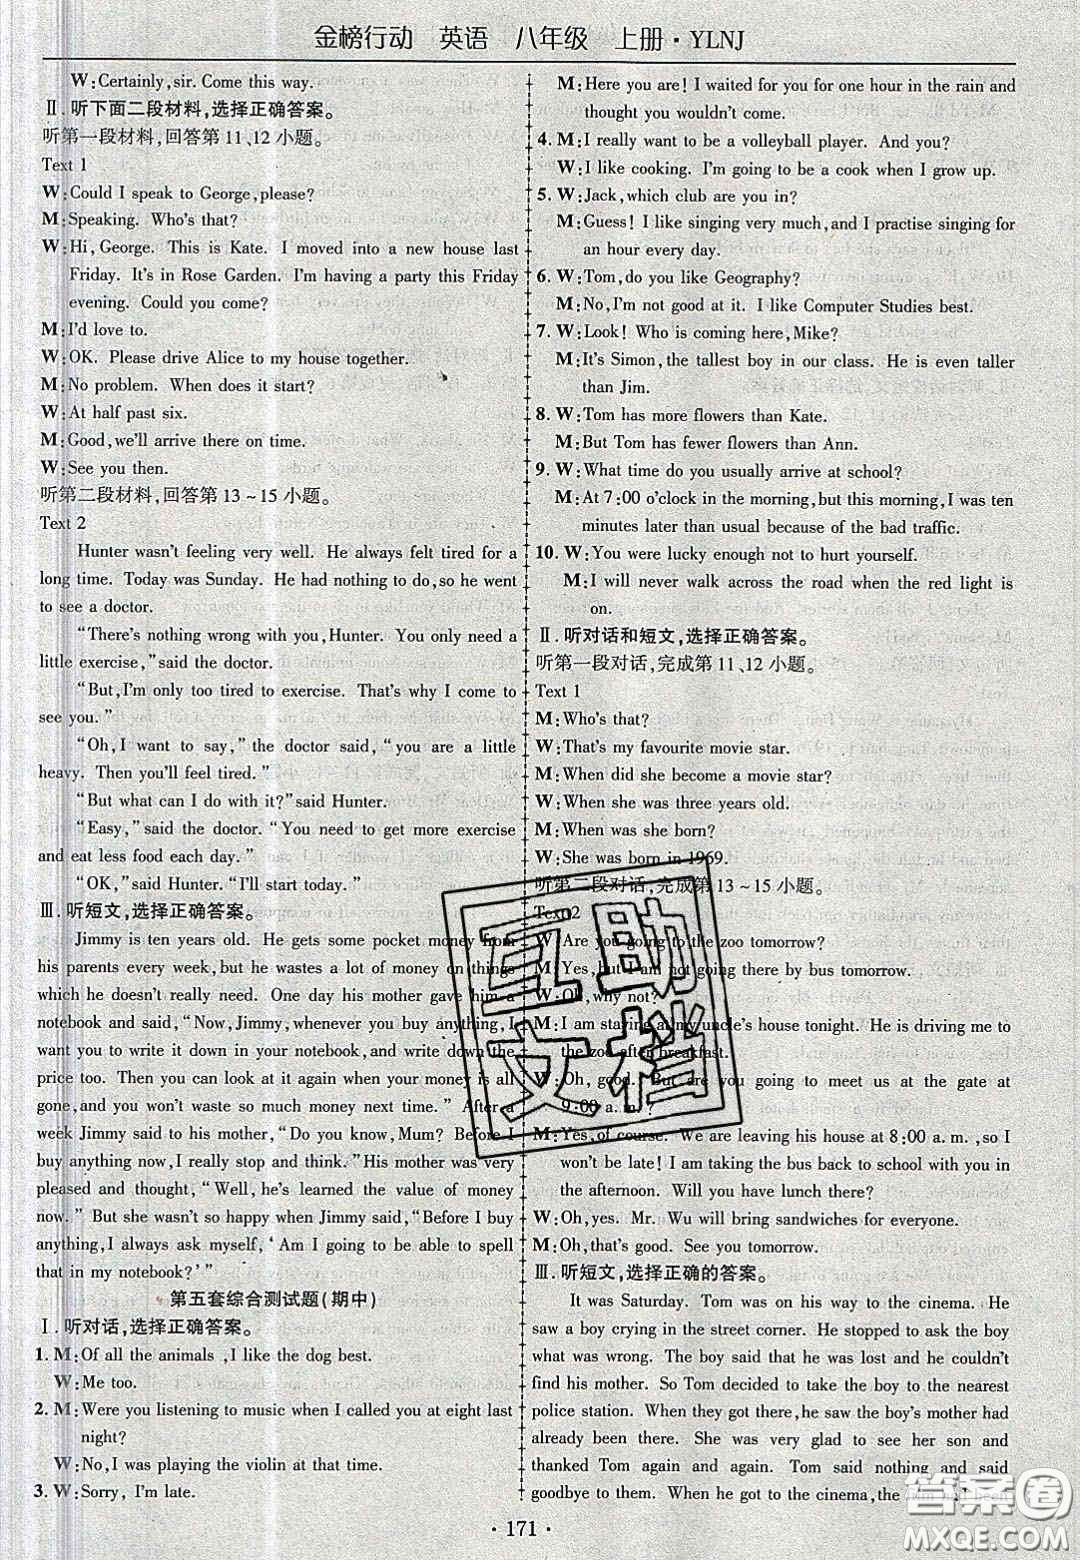 金榜行动 英语 八年级 上册·YLNJ
W:Certainly, sir. Come this way.
Ⅱ.听下面二段材料,选择正确答案。
听第一段材料,回答第11、12小题。
Text 1
W:Could I speak to George,please?
M:Speaking. Who's that?
W:Hi, George. This is Kate. I moved into a new house last
Friday. It's in Rose Garden. I'm having a party this Friday
evening. Could you come?
M:I'd love to.
W:OK. Please drive Alice to my house together.
M:No problem. When does it start?
W:At half past six.
M:Good,we'll arrive there on time.
W:See you then.
听第二段材料,回答第13~15小题。
Text 2
Hunter wasn't feeling very well. He always felt tired for a
long time. Today was Sunday. He had nothing to do,so he went
to see a doctor.
"There's nothing wrong with you,Hunter. You only need a
little exercise,"said the doctor.
"But,I'm only too tired to exercise. That's why I come to
see you."
"Oh,I want to say," the doctor said,"you are a little
heavy. Then you'll feel tired."
"But what can I do with it?"said Hunter.
"Easy,"said the doctor. "You need to get more exercise
and eat less food each day."
"OK,"said Hunter. "I'll start today."
Ⅲ.听短文,选择正确答案。
Jimmy is ten years old. He gets some pocket money from
his parents every week,but he wastes a lot of money on things
which he doesn't really need. One day his mother gave him a
notebook and said,"Now,Jimmy,whenever you buy anything,I
want you to write it down in your notebook,and write down the
price too. Then you can look at it again when your money is all
gone,and you won't waste so much money next time." After a
week Jimmy said to his mother,"Do you know,Mum? Before I
buy anything now,I really stop and think."His mother was very
pleased and thought,"Well,he's learned the value of money
now." But she wasn't so happy when Jimmy said,"Before I buy
anything,I always ask myself,'Am I going to be able to spell
that in my notebook?'"
第五套综合测试题(期中)
Ⅰ.听对话,选择正确答案。
1. M:Of all the animals ,I like the dog best.
W:Me too.
2. M:Were you listening to music when I called you at eight last
night?
W:No,I was playing the violin at that time.
3. W:Sorry, I'm late.
M:Here you are! I waited for you for one hour in the rain and
thought you wouldn't come.
4. M:I really want to be a volleyball player. And you?
W:I like cooking. I'm going to be a cook when I grow up.
5. W:Jack,which club are you in?
M:Guess! I like singing very much,and I practise singing for
an hour every day.
6. W:Tom,do you like Geography?
M:No,I'm not good at it. I like Computer Studies best.
7. W:Look! Who is coming here,Mike?
M:It's Simon,the tallest boy in our class. He is even taller
than Jim.
8. W:Tom has more flowers than Kate.
M:But Tom has fewer flowers than Ann.
9. W:What time do you usually arrive at school?
M:At 7:00 o'clock in the morning,but this morning,I was ten
minutes later than usual because of the bad traffic.
10. W:You were lucky enough not to hurt yourself.
M:I will never walk across the road when the red light is
on.
Ⅱ.听对话和短文,选择正确答案。
听第一段对话,完成第11、12小题。
Text 1
M:Who's that?
W:That's my favourite movie star.
M:When did she become a movie star?
W:When she was three years old.
M:When was she born?
W:She was born in 1969.
听第二段对话,完成第13~15小题。
Text 2
W:Are you going to the zoo tomorrow?
M:Yes,but I am not going there by bus tomorrow.
W:Oh,why not?
M:I am staying at my uncle's house tonight. He is driving me to
the zoo after breakfast.
W:Oh, good. But are you going to meet us at the gate at
9:00 a. m. ?
M:Yes,of course. We are leaving his house at 8:00 a. m. ,so I
won't be late! I am taking the bus back to school with you in
the afternoon. Will you have lunch there?
W:Oh,yes. Mr. Wu will bring sandwiches for everyone.
M:Oh,that's good. See you tomorrow.
Ⅲ.听短文,选择正确的答案。
It was Saturday. Tom was on his way to the cinema. He
saw a boy crying in the street corner. He stopped to ask the boy
what was wrong. The boy said that he was lost and couldn't
find his mother. So Tom decided to take the boy to the nearest
police station. When they got there,he saw the boy's mother had
already been there. She was very glad to see her son and
thanked Tom again and again. Tom said nothing and said
goodbye to them. When he got to the cinema,the
·171·
互助
文档
答案圈
MXQE.COM